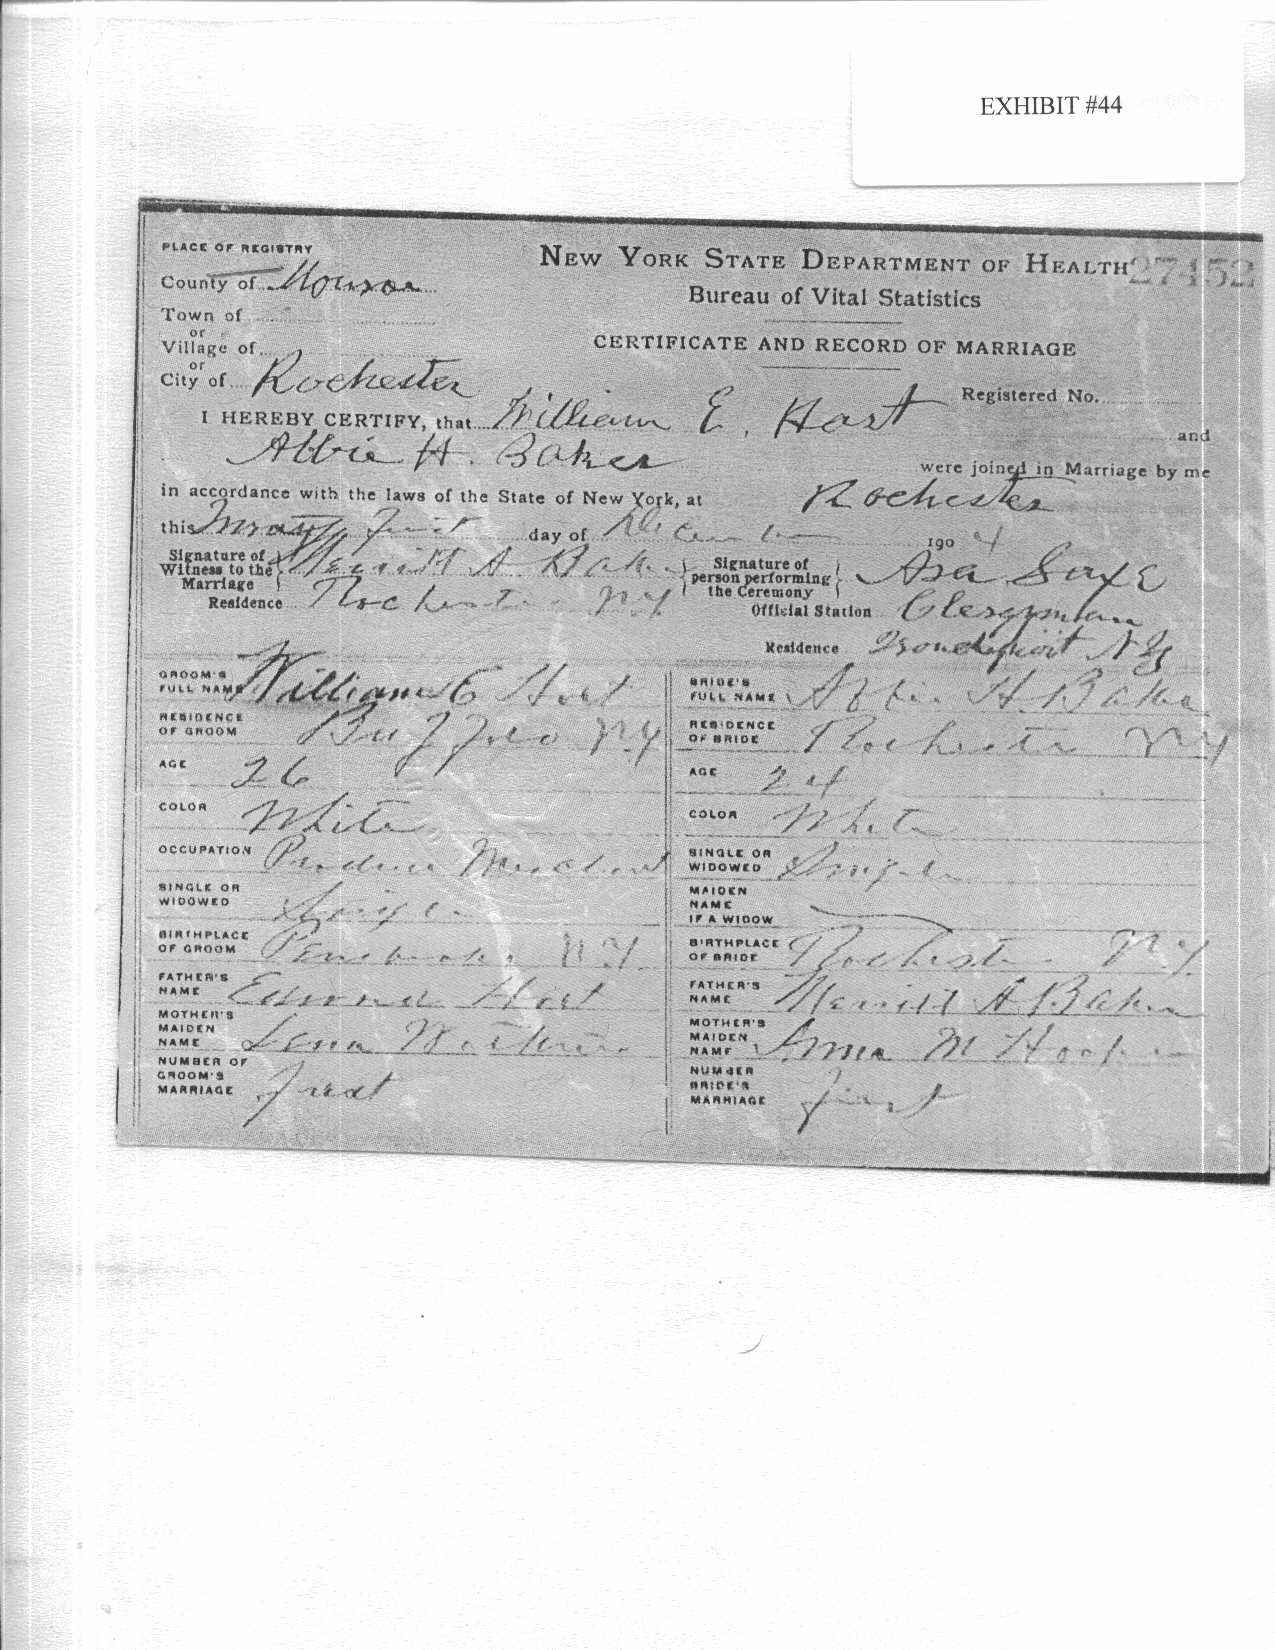 EXHIBIT #44
PLACE OF REGISTRY
NEW YORK STATE DEPARTMENT OF HEALTH 27452
County of Monroe
Bureau of Vital Statistics
Town of
or
Village of
CERTIFICATE AND RECORD OF MARRIAGE
or
City of Rochester
Registered No.
I HEREBY CERTIFY, that William E. Hart and
Abbie H. Baker were joined in Marriage by me
in accordance with the laws of the State of New York, at Rochester
this first day of December 1904
Signature of Witness to the Marriage Merritt A Baker
Signature of person performing the Ceremony Asa Saxe
Residence Rochester N.Y
Official Station Clergyman
Residence Irondequoit N Y
GROOM'S FULL NAME William E Hart
BRIDE'S FULL NAME Abbie H. Baker
RESIDENCE OF GROOM Buffalo N.Y
RESIDENCE OF BRIDE Rochester N Y
AGE 26
AGE 24
COLOR White
COLOR White
OCCUPATION Produce Merchant
SINGLE OR WIDOWED Single
SINGLE OR WIDOWED Single
MAIDEN NAME IF A WIDOW
BIRTHPLACE OF GROOM Pembroke N.Y.
BIRTHPLACE OF BRIDE Rochester N.Y.
FATHER'S NAME Edmond Hart
FATHER'S NAME Merritt A Baker
MOTHER'S MAIDEN NAME Lena
MOTHER'S MAIDEN NAME Anna M Hooker
NUMBER OF GROOM'S MARRIAGE First
NUMBER BRIDE'S MARRIAGE First